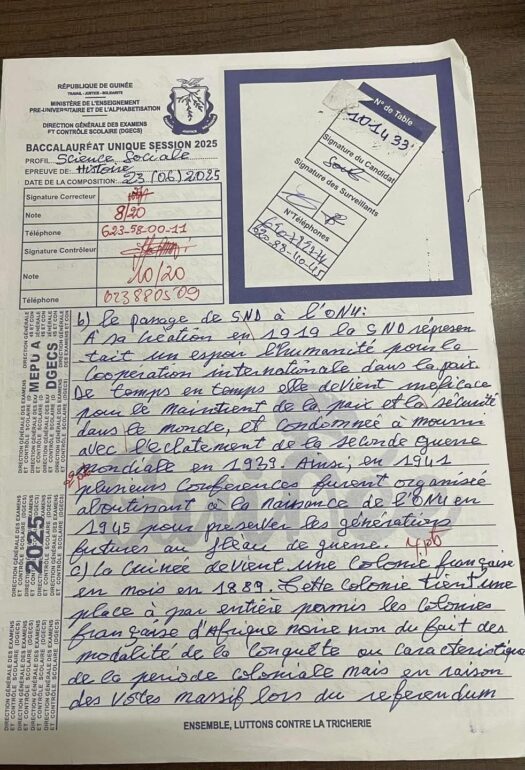 RÉPUBLIQUE DE GUINÉE
TRAVAIL - JUSTICE - SOLIDARITÉ
MINISTÈRE DE L'ENSEIGNEMENT
PRE-UNIVERSITAIRE ET DE L'ALPHABETISATION
DIRECTION GÉNÉRALE DES EXAMENS
ET CONTRÔLE SCOLAIRE (DGECS)
BACCALAURÉAT UNIQUE SESSION 2025
PROFIL Science Sociale
EPREUVE DE: Histoire
DATE DE LA COMPOSITION: 23 (06) 2025
Signature Correcteur
Note 8/20
Téléphone 623-58-00-11
Signature Contrôleur
Note 10/20
Téléphone
N° de Table
101433
Signature du Candidat
Signature des Surveillants
N°Téléphones
b) le passage de SND à l'ONU:
A sa création en 1919 la SND représen
tait un espoir l'humanité pour la
Coopération internationale dans la paix.
De temps en temps elle devient inéficace
pour le maintient de la paix et la sécurité
dans le monde, et condomnée à mourri
avec l'éclatement de la seconde guerre
mondiale en 1939. Ainsi, en 1941
plusieurs Conférences furent organisée
aboutinant à la Naissance de l'ONU en
1945 pour préserver les générations
futures au fléau de guerre.
c) la Guinée devient une colonie française
en mois en 1889. Cette colonie tient une
place à par entière parmis les colonies
française d'Afrique noire non du fait des
modalité de la conquête ou caracteristique
de la période coloniale mais en raison
des votes massif lors du referendum
DIRECTION GÉNÉRALE DES EXAMENS
ET CONTRÔLE SCOLAIRE (DGECS)
MEPU A
DGECS
2025
ENSEMBLE, LUTTONS CONTRE LA TRICHERIE